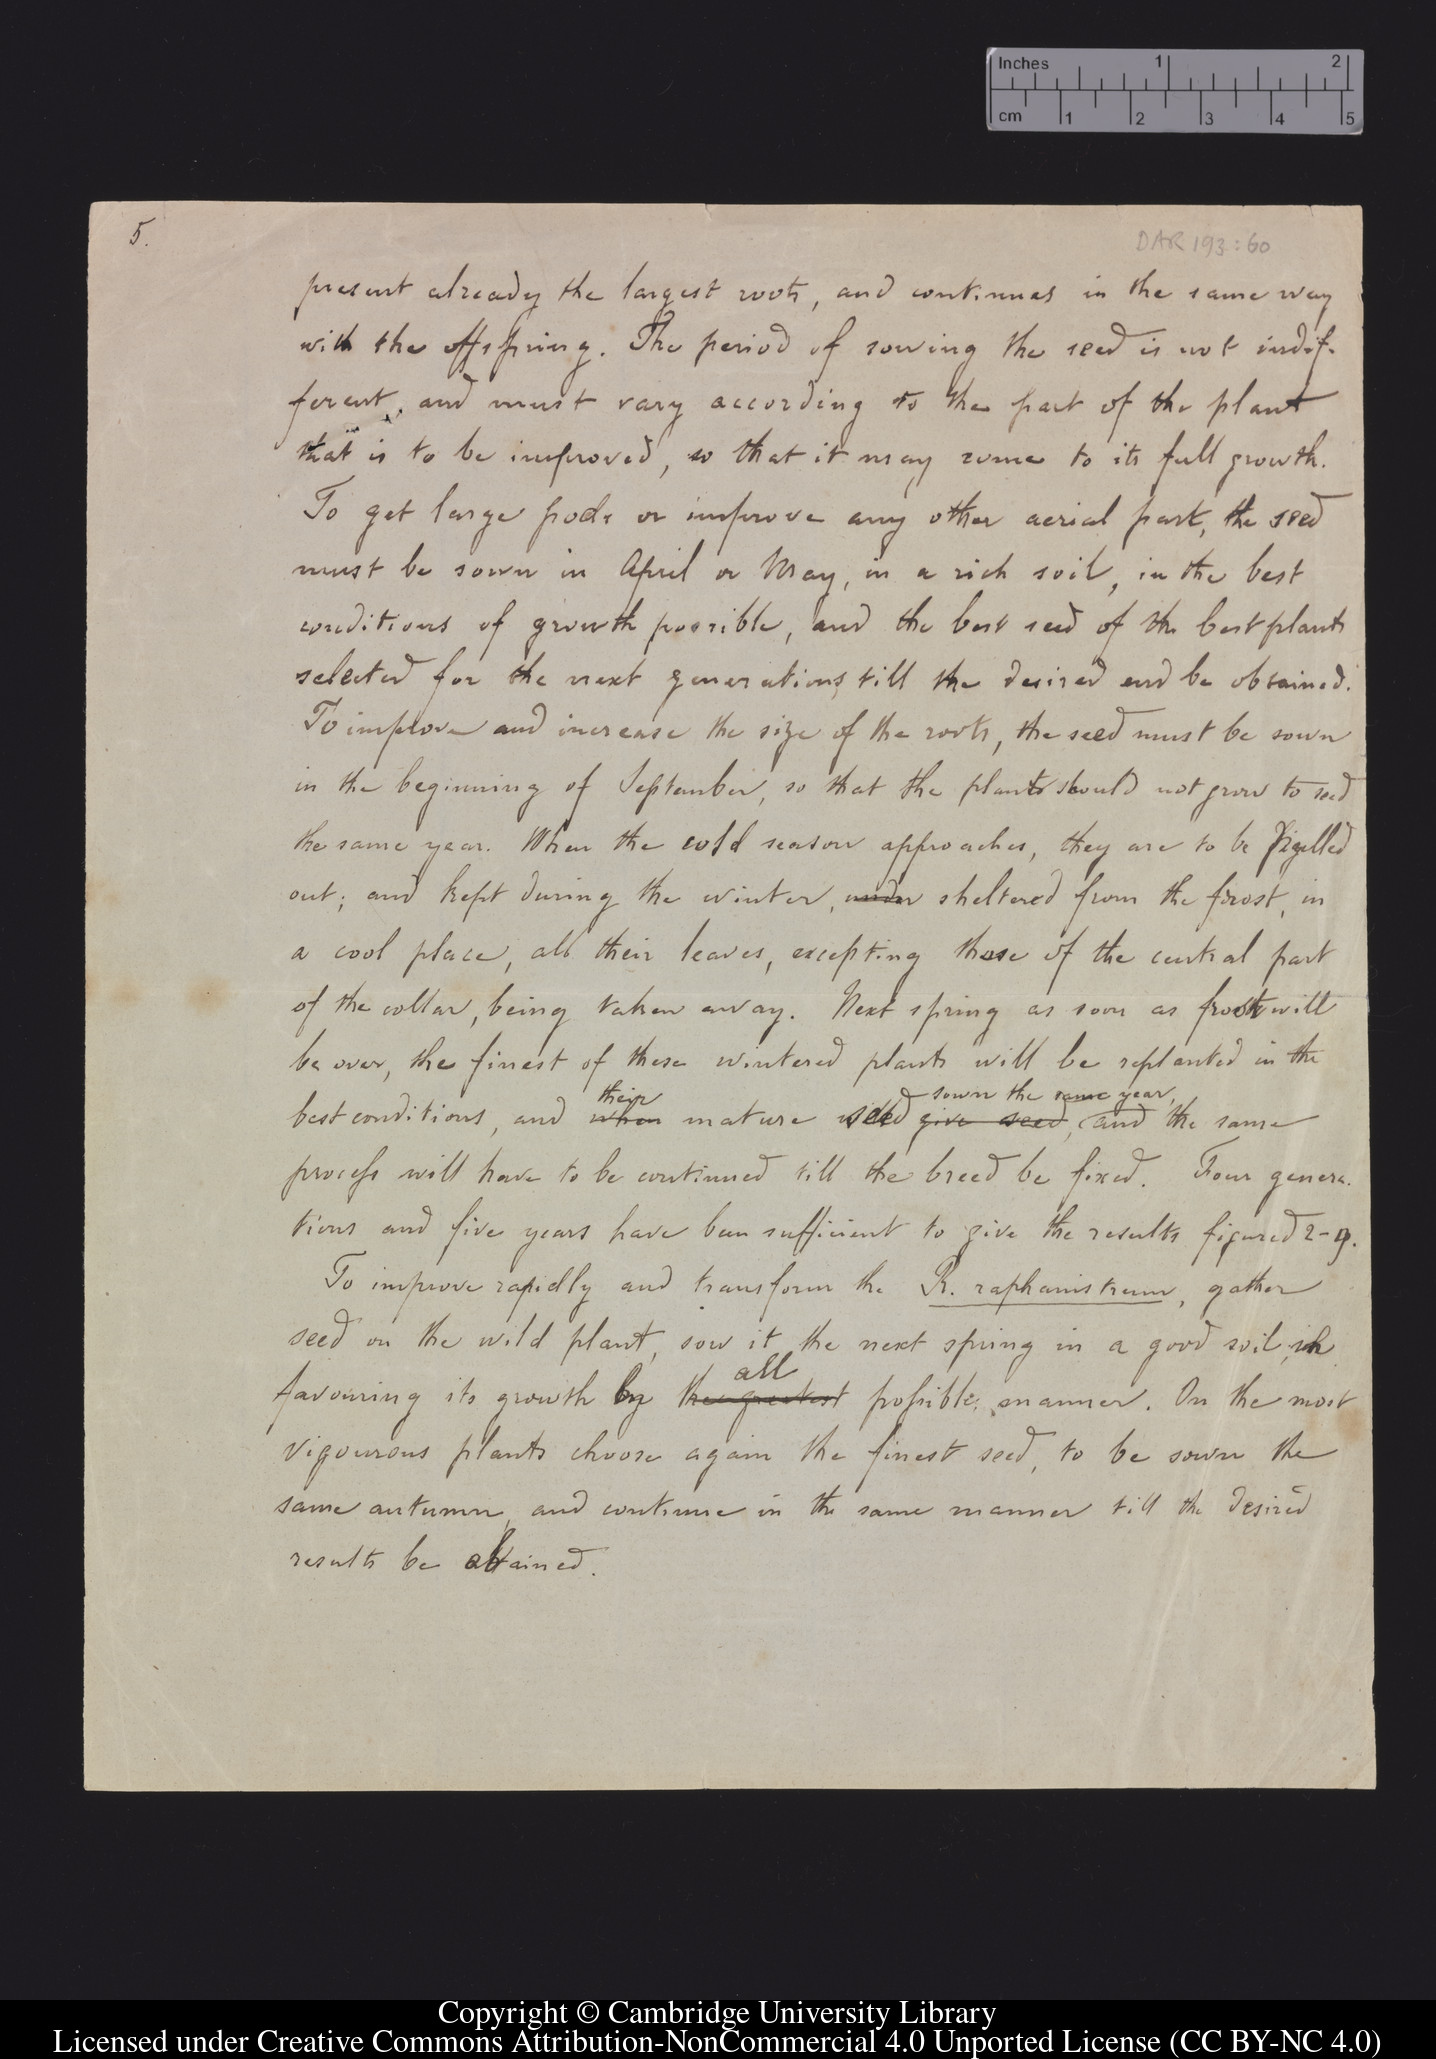 Inches 1 2
cm 1 2 3 4 5
5.
DAR 193:60
present already the largest roots, and continues in the same way
with the offspring. The period of sowing the seed is not indif-
ferent, and must vary according to the part of the plant
that is to be improved, so that it may come to its full growth.
To get large pods or improve any other aerial part, the seed
must be sown in April or May, in a rich soil, in the best
conditions of growth possible, and the best seed of the best plants
selected for the next generations, till the desired end be obtained.
To improve and increase the size of the roots, the seed must be sown
in the beginning of September, so that the plants should not grow to seed
the same year. When the cold season approaches, they are to be
out; and kept during the winter, under sheltered from the frost, in
a cool place, all their leaves, excepting those of the central part
of the collar, being taken away. Next spring as soon as frosts will
be over, the finest of these wintered plants will be replanted in the
their sown the same year,
best conditions, and when mature seed give seed, and the same
process will have to be continued till the breed be fixed. Four genera-
tions and five years have been sufficient to give the results figured 2-9.
To improve rapidly and transform the R. raphanistrum, gather
seed on the wild plant, sow it the next spring in a good soil, in
all
favouring its growth by the greatest possible manner. On the most
vigourous plants choose again the finest seed, to be sown the
same autumn, and continue in the same manner till the desired
results be obtained.
Copyright © Cambridge University Library
Licensed under Creative Commons Attribution-NonCommercial 4.0 Unported License (CC BY-NC 4.0)